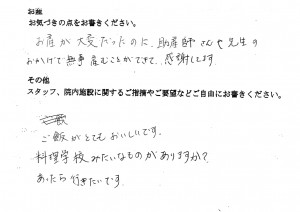 お産
お気づきの点をお書きください。
お産が大変だったのに、助産師さんや先生の
おかげで無事産むことができて、感謝してます
その他
スタッフ、院内施設に関するご指摘やご要望などご自由にお書きください。
ご飯がとてもおいしいです。
料理学校みたいなものがありますか?
あったら行きたいです。